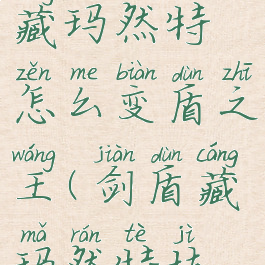 藏玛然特
zěn me biàn dùn zhī
怎么变盾之
wáng jiàn dùn cáng
王(剑盾藏
mǎ rán tè jì
玛然特技